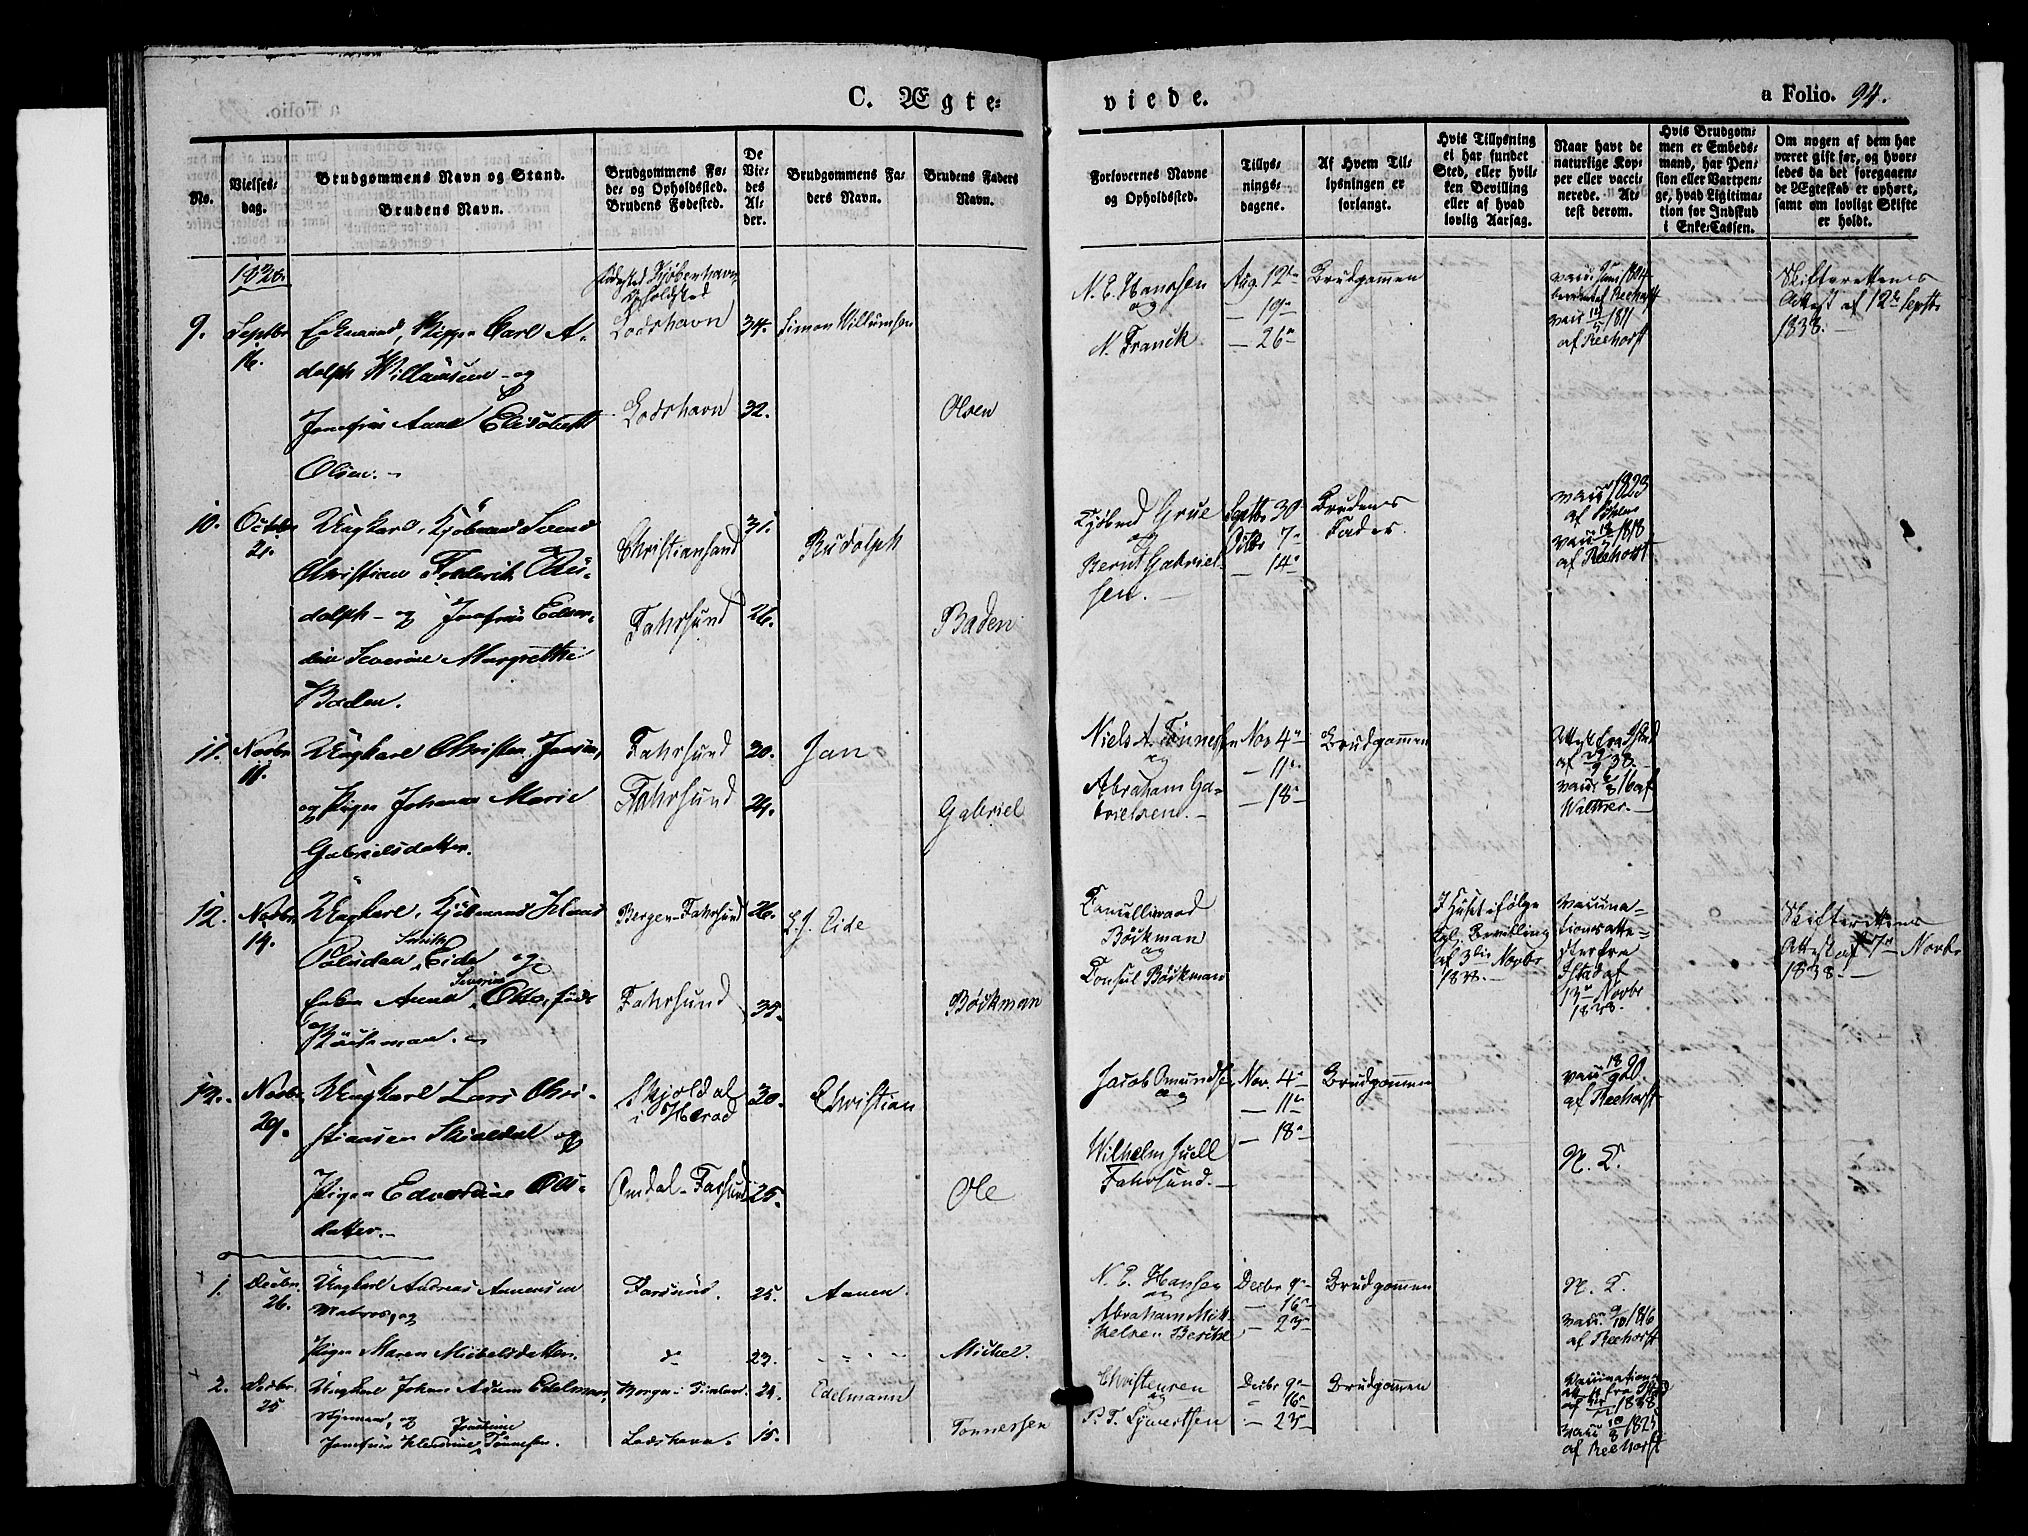 C. Ægte-
viede.
a Folio. 94.
No.
Vielses-
dag.
Brudgommens Navn og Stand.
Brudens Navn.
Brudgommens Fø-
de- og Opholdssted.
Brudens Fødested.
De
Vie-
des
Al-
der.
Brudgommens Fa-
ders Navn.
Brudens Faders
Navn.
Forlovernes Navne
og Opholdssted.
Tillys-
nings-
dagene.
Af Hvem Til-
lysningen er
forlangt.
Hvis Tillysning
ei har fundet
Sted, eller hvil-
ken Bevilling
eller af hvad
lovlig Aarsag.
Naar havt de
naturlige Kop-
per eller vacci-
nerede. At-
test derom.
Hvis Brudgom-
men er Embeds-
mand, har Pen-
sion eller Vartpen-
ge, hvad Ligitima-
tion for Indskud
i Enke-Cassen.
Om nogen af dem har
været gift før, og hvor-
ledes da det foregaaen-
de Ægteskab er ophørt,
samt om lovligt Skifte
er holdt.
1838.
9. Septbr
16.
Enkemand, Skipper Carl A-
dolph Willumsen og
Jomfrue Anne Elisabeth
Olsen.
Fødested Kjøbenhavn
Opholdsted
Lodshavn 34. Simon Willumsen
Lodshavn 32. Olsen
N. E. Hanssen
og
N. Franck.
Aug. 12te
— 19
— 26
Brudgommen
vacc 1804
af Reehorst
vacc 1811
af Reehorst
Skifterettens
Attest af 12te Septbr
1838.
10. Octobr
21.
Ungkarl, Kjøbmand Svend
Christian Frederik Ru-
dolph - og Jomfrue Edvar-
dine Severine Margrethe
Baden.
Christiansand 31. Rudolph
Fahrsund 26. Baden
Kjøbmd Grue
og
Bernt Gabriel-
sen.
Septbr 30
Octbr 7
— 14
Brudens
Fader.
vacc 1823
af
vacc 1818
af Reehorst
11. Novbr
11.
Ungkarl Christen Jansen,
og Pigen Johanne Marie
Gabrielsdatter.
Fahrsund 30. Jan
Fahrsund 24. Gabriel
Niels A. Tønnessen
og
Abraham Ga-
brielsen.
Nov 4
— 11
— 18
Brudgommen
Attest fra Istad
af 38.
vacc 16 af
Walther.
12. Novbr
14.
Ungkarl, Kjøbmand Klaus
Paludan Eide og
Enken Anne Severine Otto, født
Böckman.
Bergen-Fahrsund 26. Eide
Fahrsund 35. Böckman
Cancelliraad
Böckman
og
Consul Böckman
I Huset ifølge
Kgl. Bevilling
af 3die Novbr
1838.
Vaccina-
tionsatte-
ster fra
Istad af
13 Novbr
1838.
Skifterettens
Attest af 7 Novbr
1838.
13. Novbr
29.
Ungkarl Lars Chri-
stiansen Skjoldal og
Pigen Edvardine Ols-
datter.
Skjoldal
i Herad 30. Christian
Omdal-Farsund 25. Ole
Jacob Omundsen
og
Wilhelm Juell
Fahrsund.
Nov. 4
— 11
— 18
Brudgommen
vacc 18/9 20
af Reehorst
1. Decbr
26.
Ungkarl Andreas Aanensen
Matros, og
Pigen Maren Michelsdatter.
Farsund. 25. Aanen.
do 23. Michel.
N. E. Hansen
og
Abraham Mik-
kelsen
Decbr 9
— 16
— 23
Brudgommen
vacc. 1816
af Reehorst
2. Decbr
25
Ungkarl Johan Adam Edelman,
Styrmand, og
Jomfrue Tønnesen.
24. Edelmann
Lodshavn. 15. Tönnessen
Christensen
og
P. T. Sjvertsen
Decbr 9
— 16
— 23
Brudgommen
Vaccinations
att fra Istad
af 1838
vacc 1825
af Reehorst